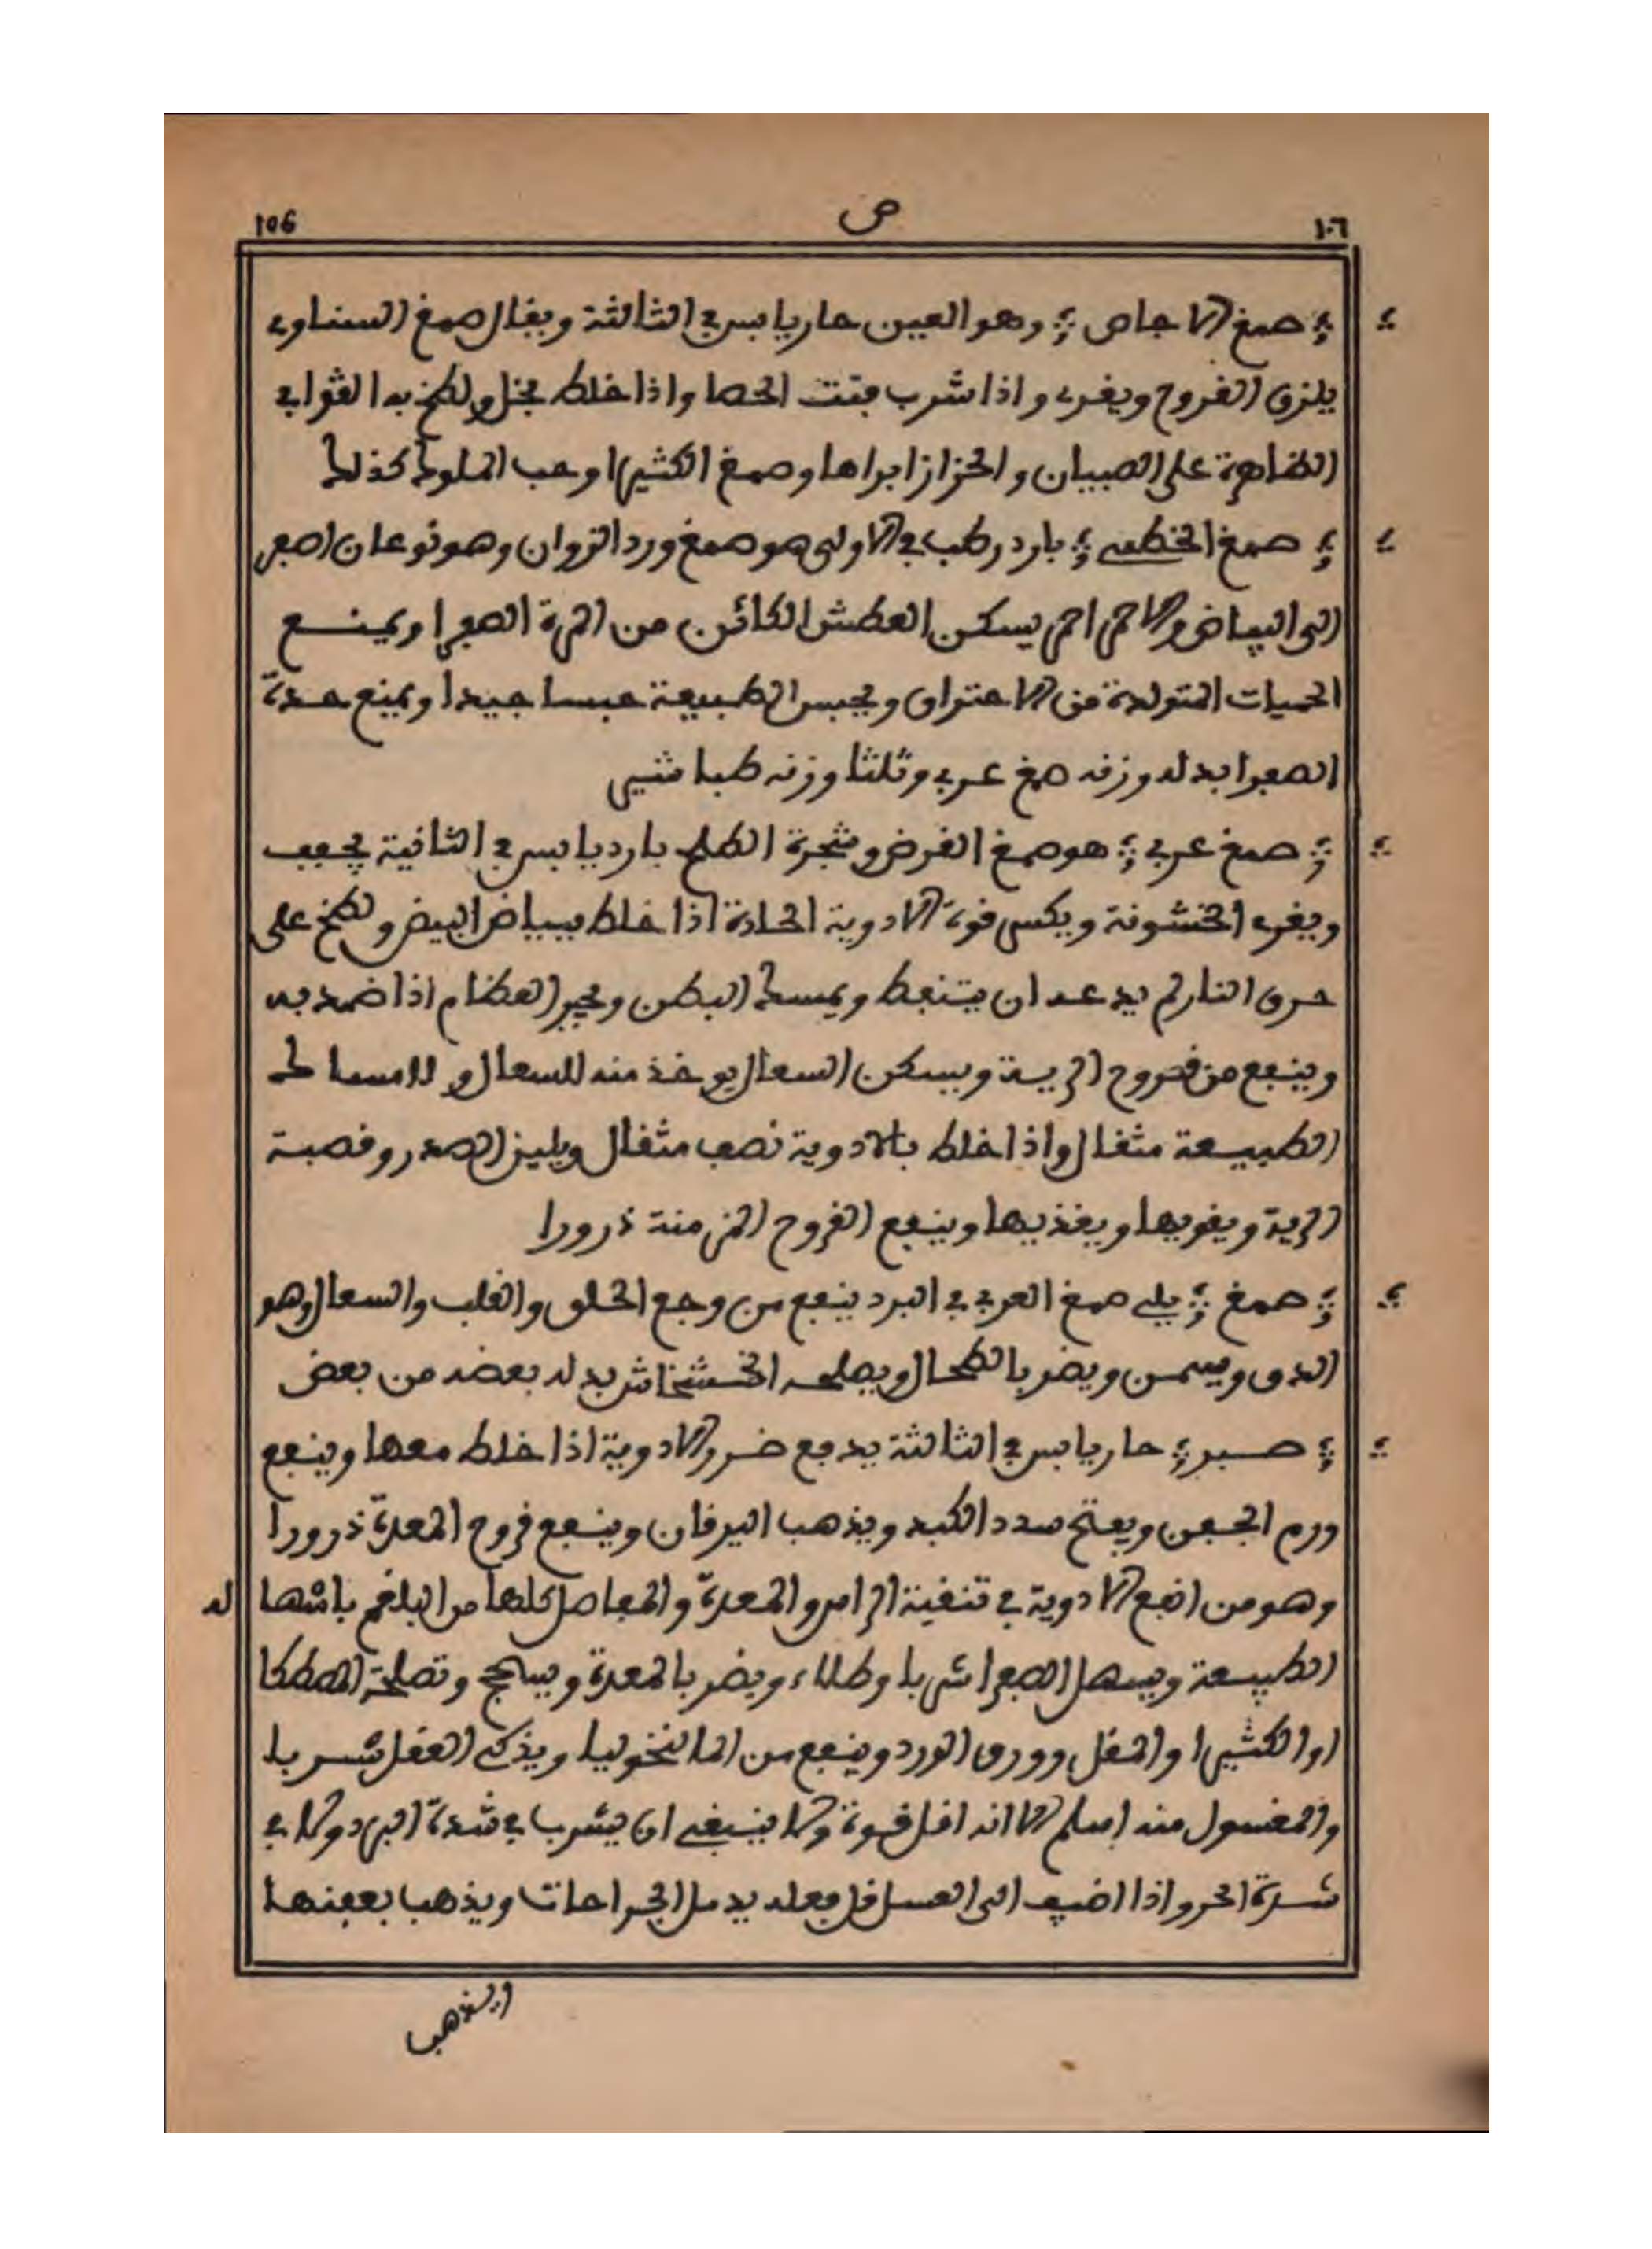 106 ص ١٠٦
صمغ الاجاص وهو العين حار يابس في الثالثة ويقال صمغ السناوي
يلزق القروح ويغري واذا شرب فتت الحصا واذا خلط بخل ولطخ به القوابي
الظاهرة على الصبيان والحزاز ابراها وصمغ الكثيرا وحب الملوك كذلك
صمغ الخطمي بارد رطب في الاولى هو صمغ ورد الزوان وهو نوعان اصفر
الى البياض والاحمر احمر يسكن العطش الكائن من المرة الصفرا ويمنع
الحميات المتولدة من الاحتراق ويحبس الطبيعة حبسا جيدا ويمنع حدة
الصفرا بدله وزنه صمغ عربي وثلثا وزنه طباشير
صمغ عربي هو صمغ القرض وشجرة الطلح بارد يابس في الثانية يجفف
ويغري الخشونة ويكسر قوة الادوية الحادة اذا خلط ببياض البيض ولطخ على
حرق النار لم يدعه ان يتنفط ويمسك البطن ويجبر العظام اذا ضمد به
وينفع من قروح الرية ويسكن السعال يوخذ منه للسعال ولامساك
الطبيعة مثقال واذا خلط بالادوية نصف مثقال ويلين الصدر وقصبة
الرية ويقويها ويغذيها وينفع القروح المزمنة ذرورا
صمغ يلي صمغ العربي في البرد ينفع من وجع الحلق والقلب والسعال وهو
الدق ويسمن ويضر بالطحال ويصلحه الخشخاش بدله بعضه من بعض
صبر حار يابس في الثالثة يدفع ضرر الادوية اذا خلط معها وينفع
ورم الجفن ويفتح سدد الكبد ويذهب اليرقان وينفع قروح المعدة ذرورا
وهو من انفع الادوية في تنقية الراس والمعدة والمفاصل كلها من البلغم باشها له
الطبيعة ويسهل الصفرا شربا وطلاء ويضر بالمعدة ويسحج وتصلحه المصطكا
او الكثيرا والمقل وورق الورد وينفع من المالنخوليا ويذكي العقل شربا
والمغسول منه اسلم الا انه اقل قوة ولا ينبغي ان يشرب في شدة البرد ولا في
شدة الحر واذا اضيف الى العسل قل فعله يدمل الجراحات ويذهب بعفنها
ويذهب